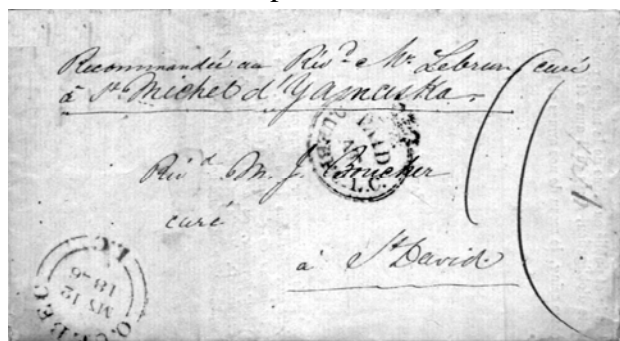 Recommandée au Rév.d Mr. Lebrun curé
à St. Michel d'Yamaska.
QUEBEC PAID L.C.
Révd. M. J. Boucher
curé
à St David
QUEBEC L.C.
MY 12
1846